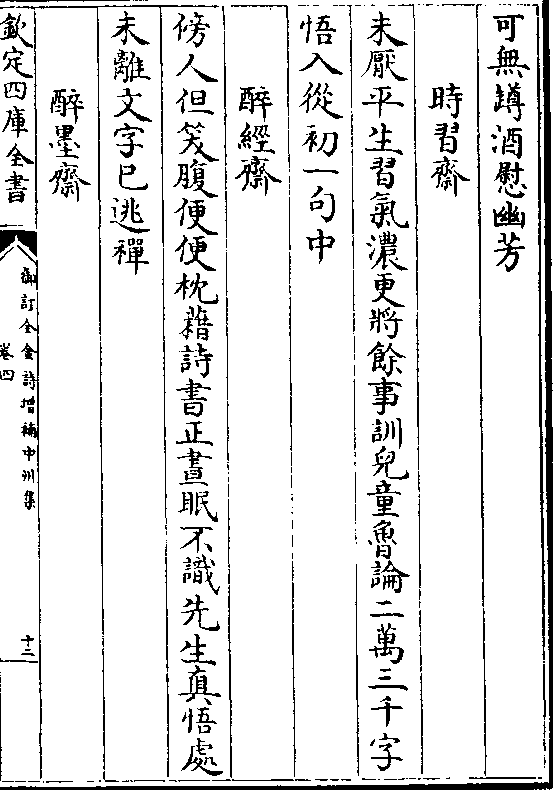 可無罇酒慰幽芳
時習齋
未厭平生習氣濃更將餘事訓兒童魯論二萬三千字
悟入從初一句中
醉經齋
傍人但笑腹便便枕藉詩書正晝眠不識先生真悟處
未離文字已逃禪
醉墨齋
欽定四庫全書
御訂全金詩增補中州集
卷四
十二